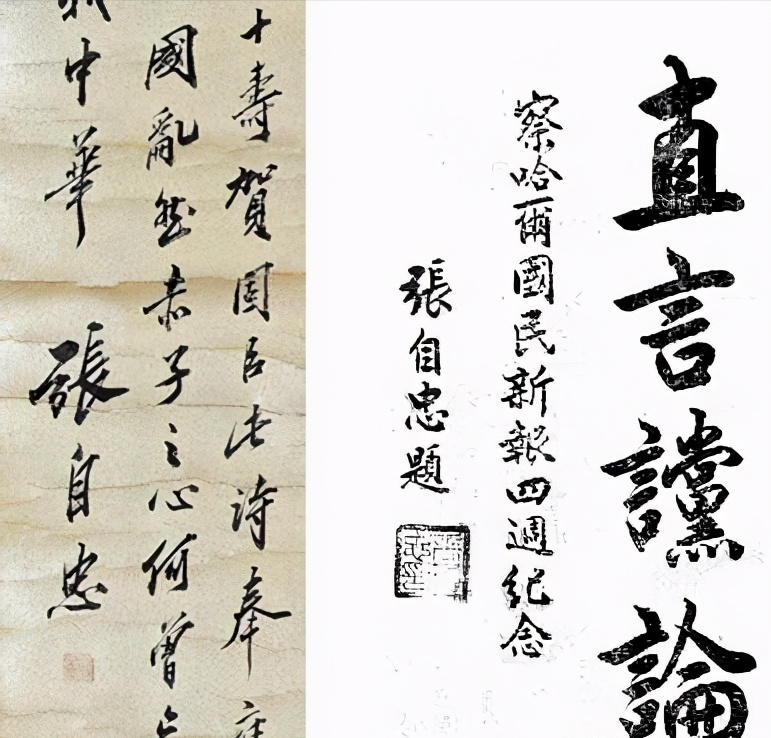 直言讜論
察哈爾國民新報四週紀念
張自忠題
十壽賀臣此詩奉
國亂然赤子之心何曾
中華 張自忠